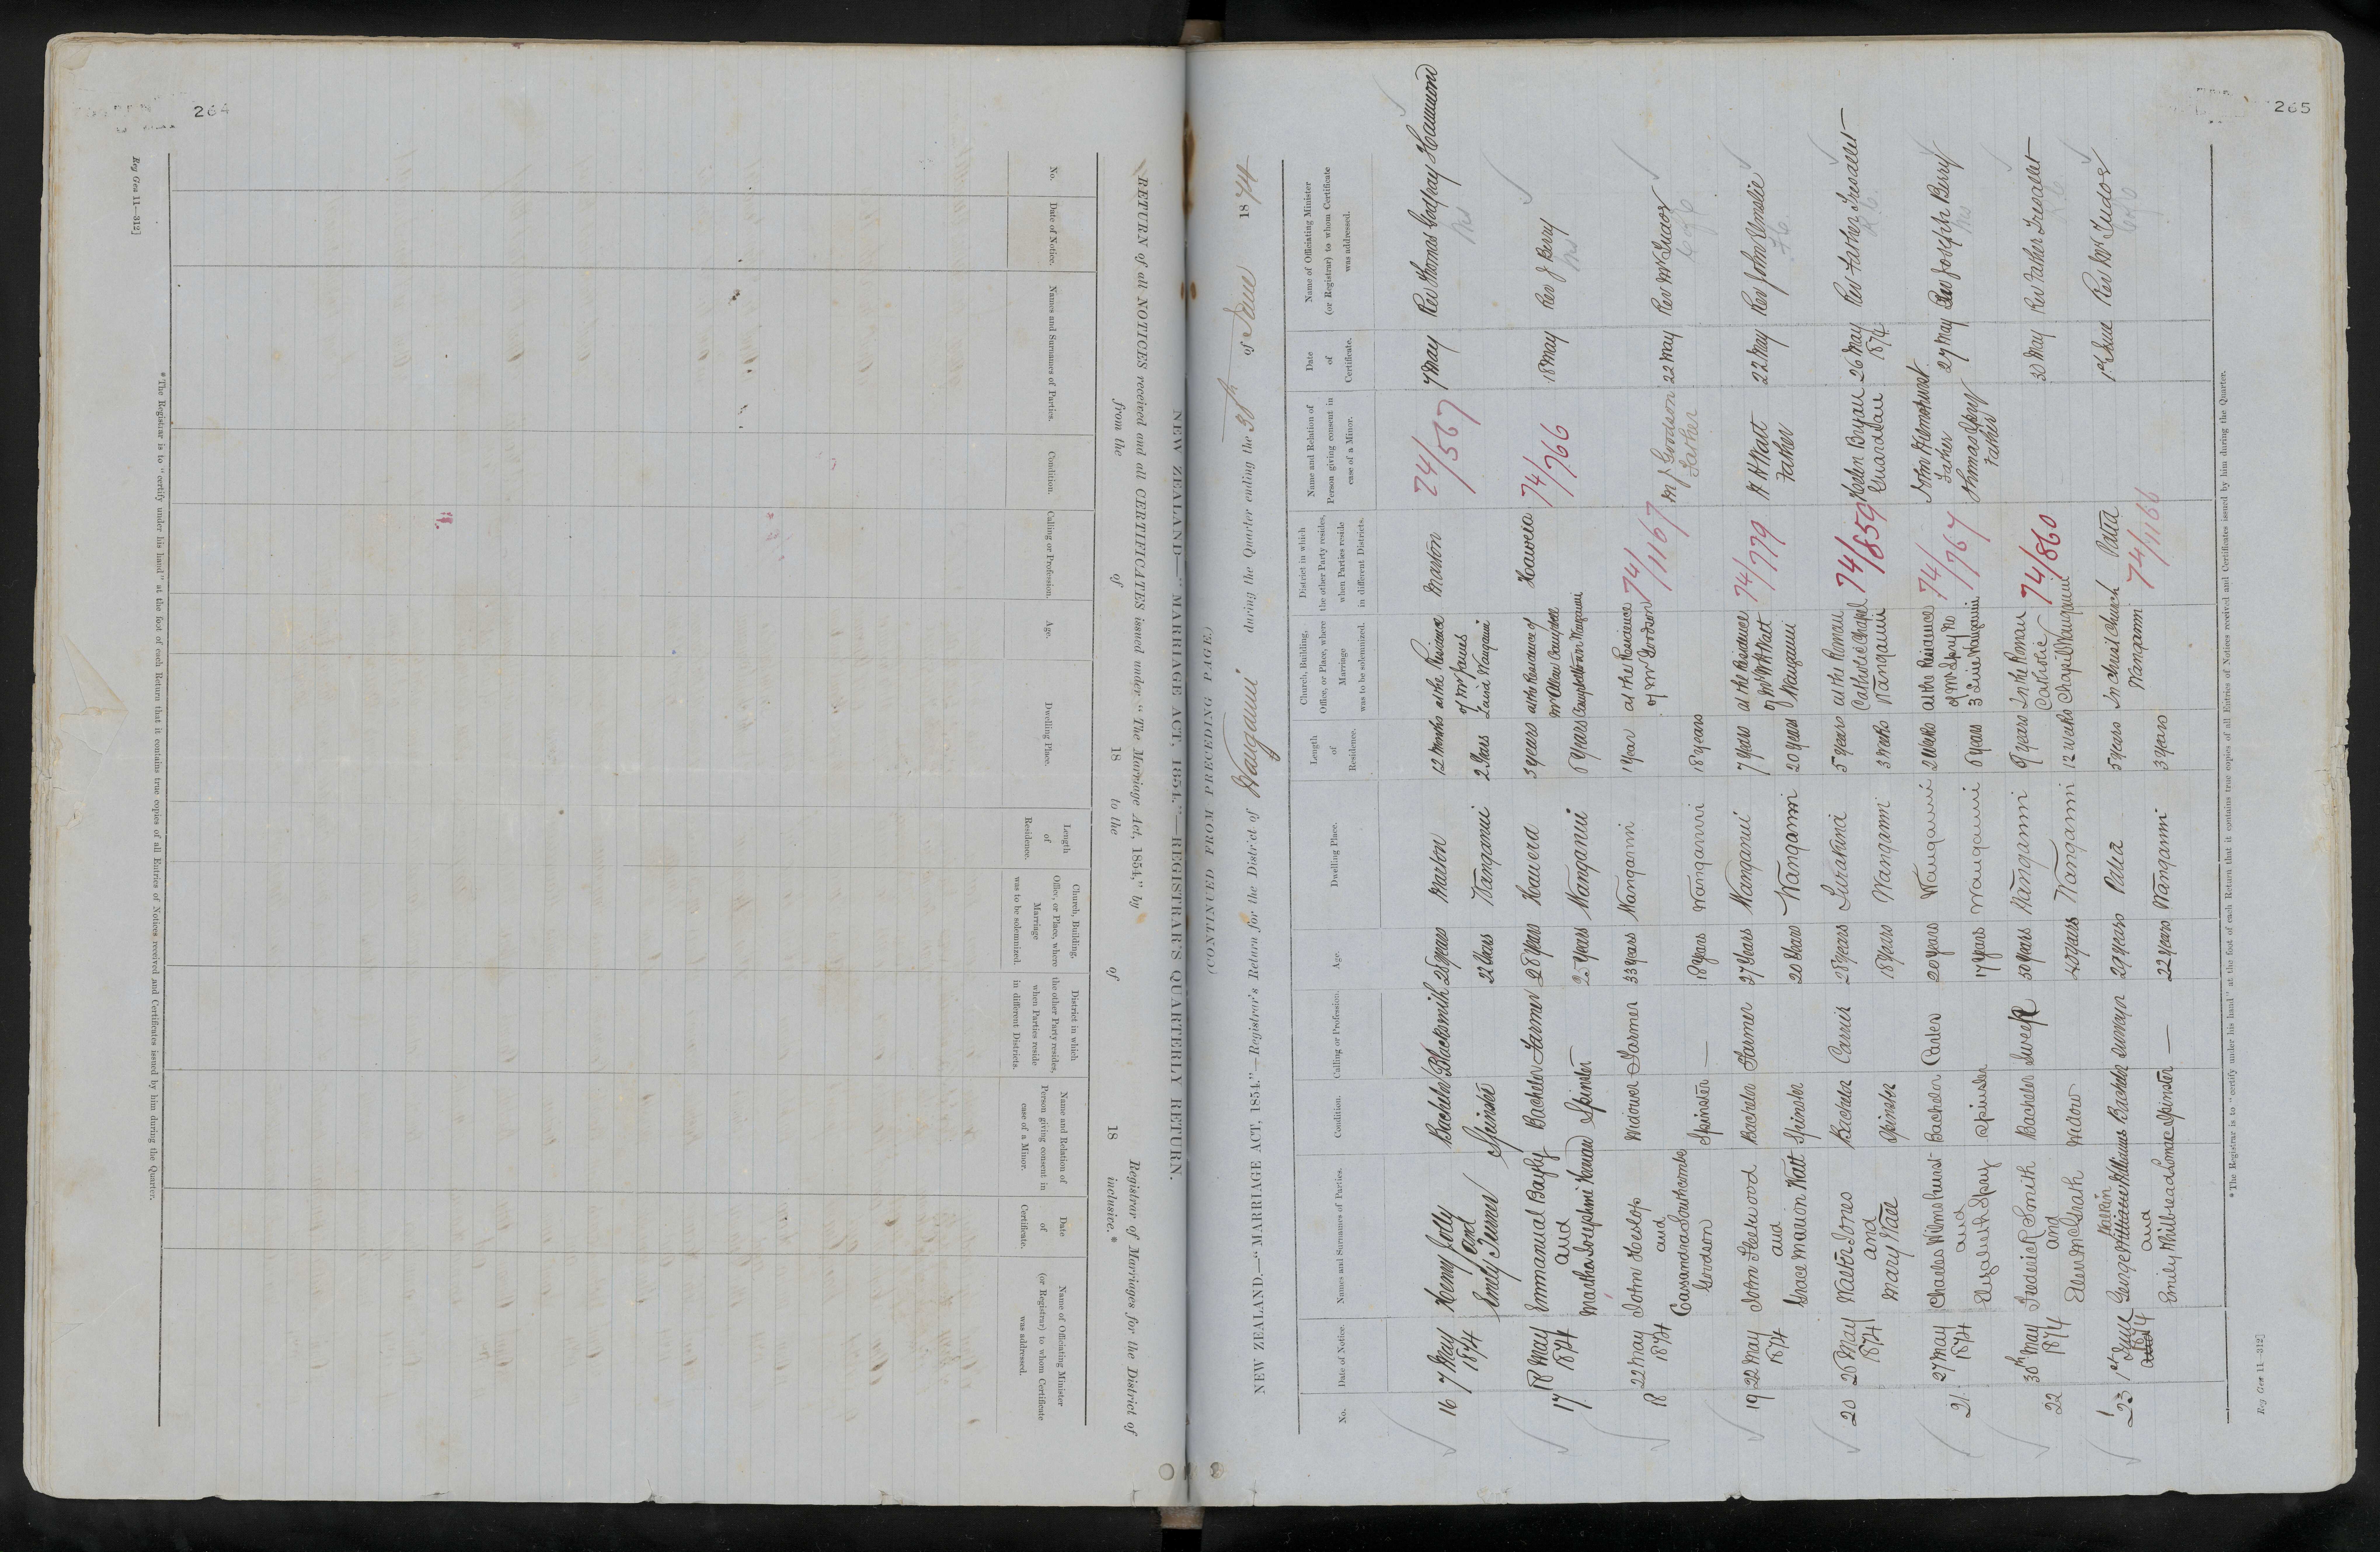 264
NEW ZEALAND—"MARRIAGE ACT, 1854."—REGISTRAR'S QUARTERLY RETURN.
RETURN of all NOTICES received and all CERTIFICATES issued under "The Marriage Act, 1854," by Registrar of Marriages for the District of
from the of 18 to the of 18 inclusive.*
No.
Date of Notice.
Names and Surnames of Parties.
Condition.
Calling or Profession.
Age.
Dwelling Place.
Length of Residence.
Church, Building, Office, or Place, where Marriage was to be solemnized.
District in which the other Party resides, when Parties reside in different Districts.
Name and Relation of Person giving consent in case of a Minor.
Date of Certificate.
Name of Officiating Minister (or Registrar) to whom Certificate was addressed.
* The Registrar is to "certify under his hand" at the foot of each Return that it contains true copies of all Entries of Notices received and Certificates issued by him during the Quarter.
Reg Gen 11—312]
265
(CONTINUED FROM PRECEDING PAGE.)
NEW ZEALAND.—"MARRIAGE ACT, 1854."—Registrar's Return for the District of Wanganui during the Quarter ending the 30th of June 1874
No.
Date of Notice.
Names and Surnames of Parties.
Condition.
Calling or Profession.
Age.
Dwelling Place.
Length of Residence.
Church, Building, Office, or Place, where Marriage was to be solemnized.
District in which the other Party resides, when Parties reside in different Districts.
Name and Relation of Person giving consent in case of a Minor.
Date of Certificate.
Name of Officiating Minister (or Registrar) to whom Certificate was addressed.
16 7 May Henry Jolly Bachelor Blacksmith 25 years Marton 12 months at the Residence Marton 74/567 7 May Rev Thomas Godfray Hammond
1874 and of Mr James
Emely Turner Spinster 22 Years Wanganui 2 Years Laird Wanganui
17 18 May Emmanual Bayly Bachelor Farmer 28 years Hawera 3 years at the Residence of Hawera 74/766 18 May Rev J Berry
1874 and Mr Alex Campbell
Martha Josephine Spinster 25 years Wanganui 6 years Campbelltown Wanganui
18 22 May John Heslop Widower Farmer 33 years Wanganui 1 year at the Residence 74/1167 Goodson 22 May Rev Mr Tudor
1874 and of Mr Goodson Father
Cassandra Southcombe Spinster — 18 years Wanganui 18 years
Goodson
19 22 May John Fleetwood Bachelor Farmer 27 Years Wanganui 7 years at the Residence 74/779 Watt 22 May Rev John Elmslie
1874 and of Mr W H Watt Father
Grace Marion Watt Spinster 20 Years Wanganui 20 years Wanganui
20 26 May Walter Jones Bachelor 28 years Turakina 5 years at the Roman 74/859 Helen Bryan 26 May Rev Father Tresallet
1874 and Catholic Chapel Guardian 1874
Mary Spinster 18 years Wanganui 3 weeks Wanganui
21 27 May Charles Bachelor 20 years Wanganui 2 Weeks at the Residence 74/767 John 27 May Rev Joseph Berry
1874 and of Mr Spay Father
Elizabeth Spay Spinster 17 years Wanganui 6 years Wanganui Thomas Spay
Father
22 30th May Frederick Smith Bachelor Sweep 50 years Wanganui 9 years In the Roman 74/860 30 May Rev Father Tresallet
1874 and Catholic
Ellen McGrath Widow 40 years Wanganui 12 weeks Chapel Wanganui
23 1st June George Williams Bachelor Surveyor 29 years Patea 5 years In Christ Church Patea 74/1166 1st June Rev Mr Tudor
1874 and Wanganui
Emily Spinster — 22 years Wanganui 3 years
* The Registrar is to "certify under his hand" at the foot of each Return that it contains true copies of all Entries of Notices received and Certificates issued by him during the Quarter.
Reg Gen 11—312]